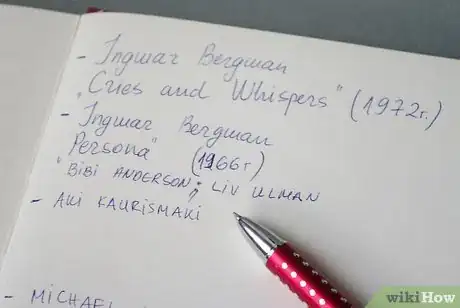 - Ingmar Bergman
„Cries and Whispers" (1972г.)
- Ingmar Bergman
Persona" (1966г)
"BIBI ANDERSON; LIV ULMAN
- AKI KAURISMAKI
- MICHAEL
wikiHow